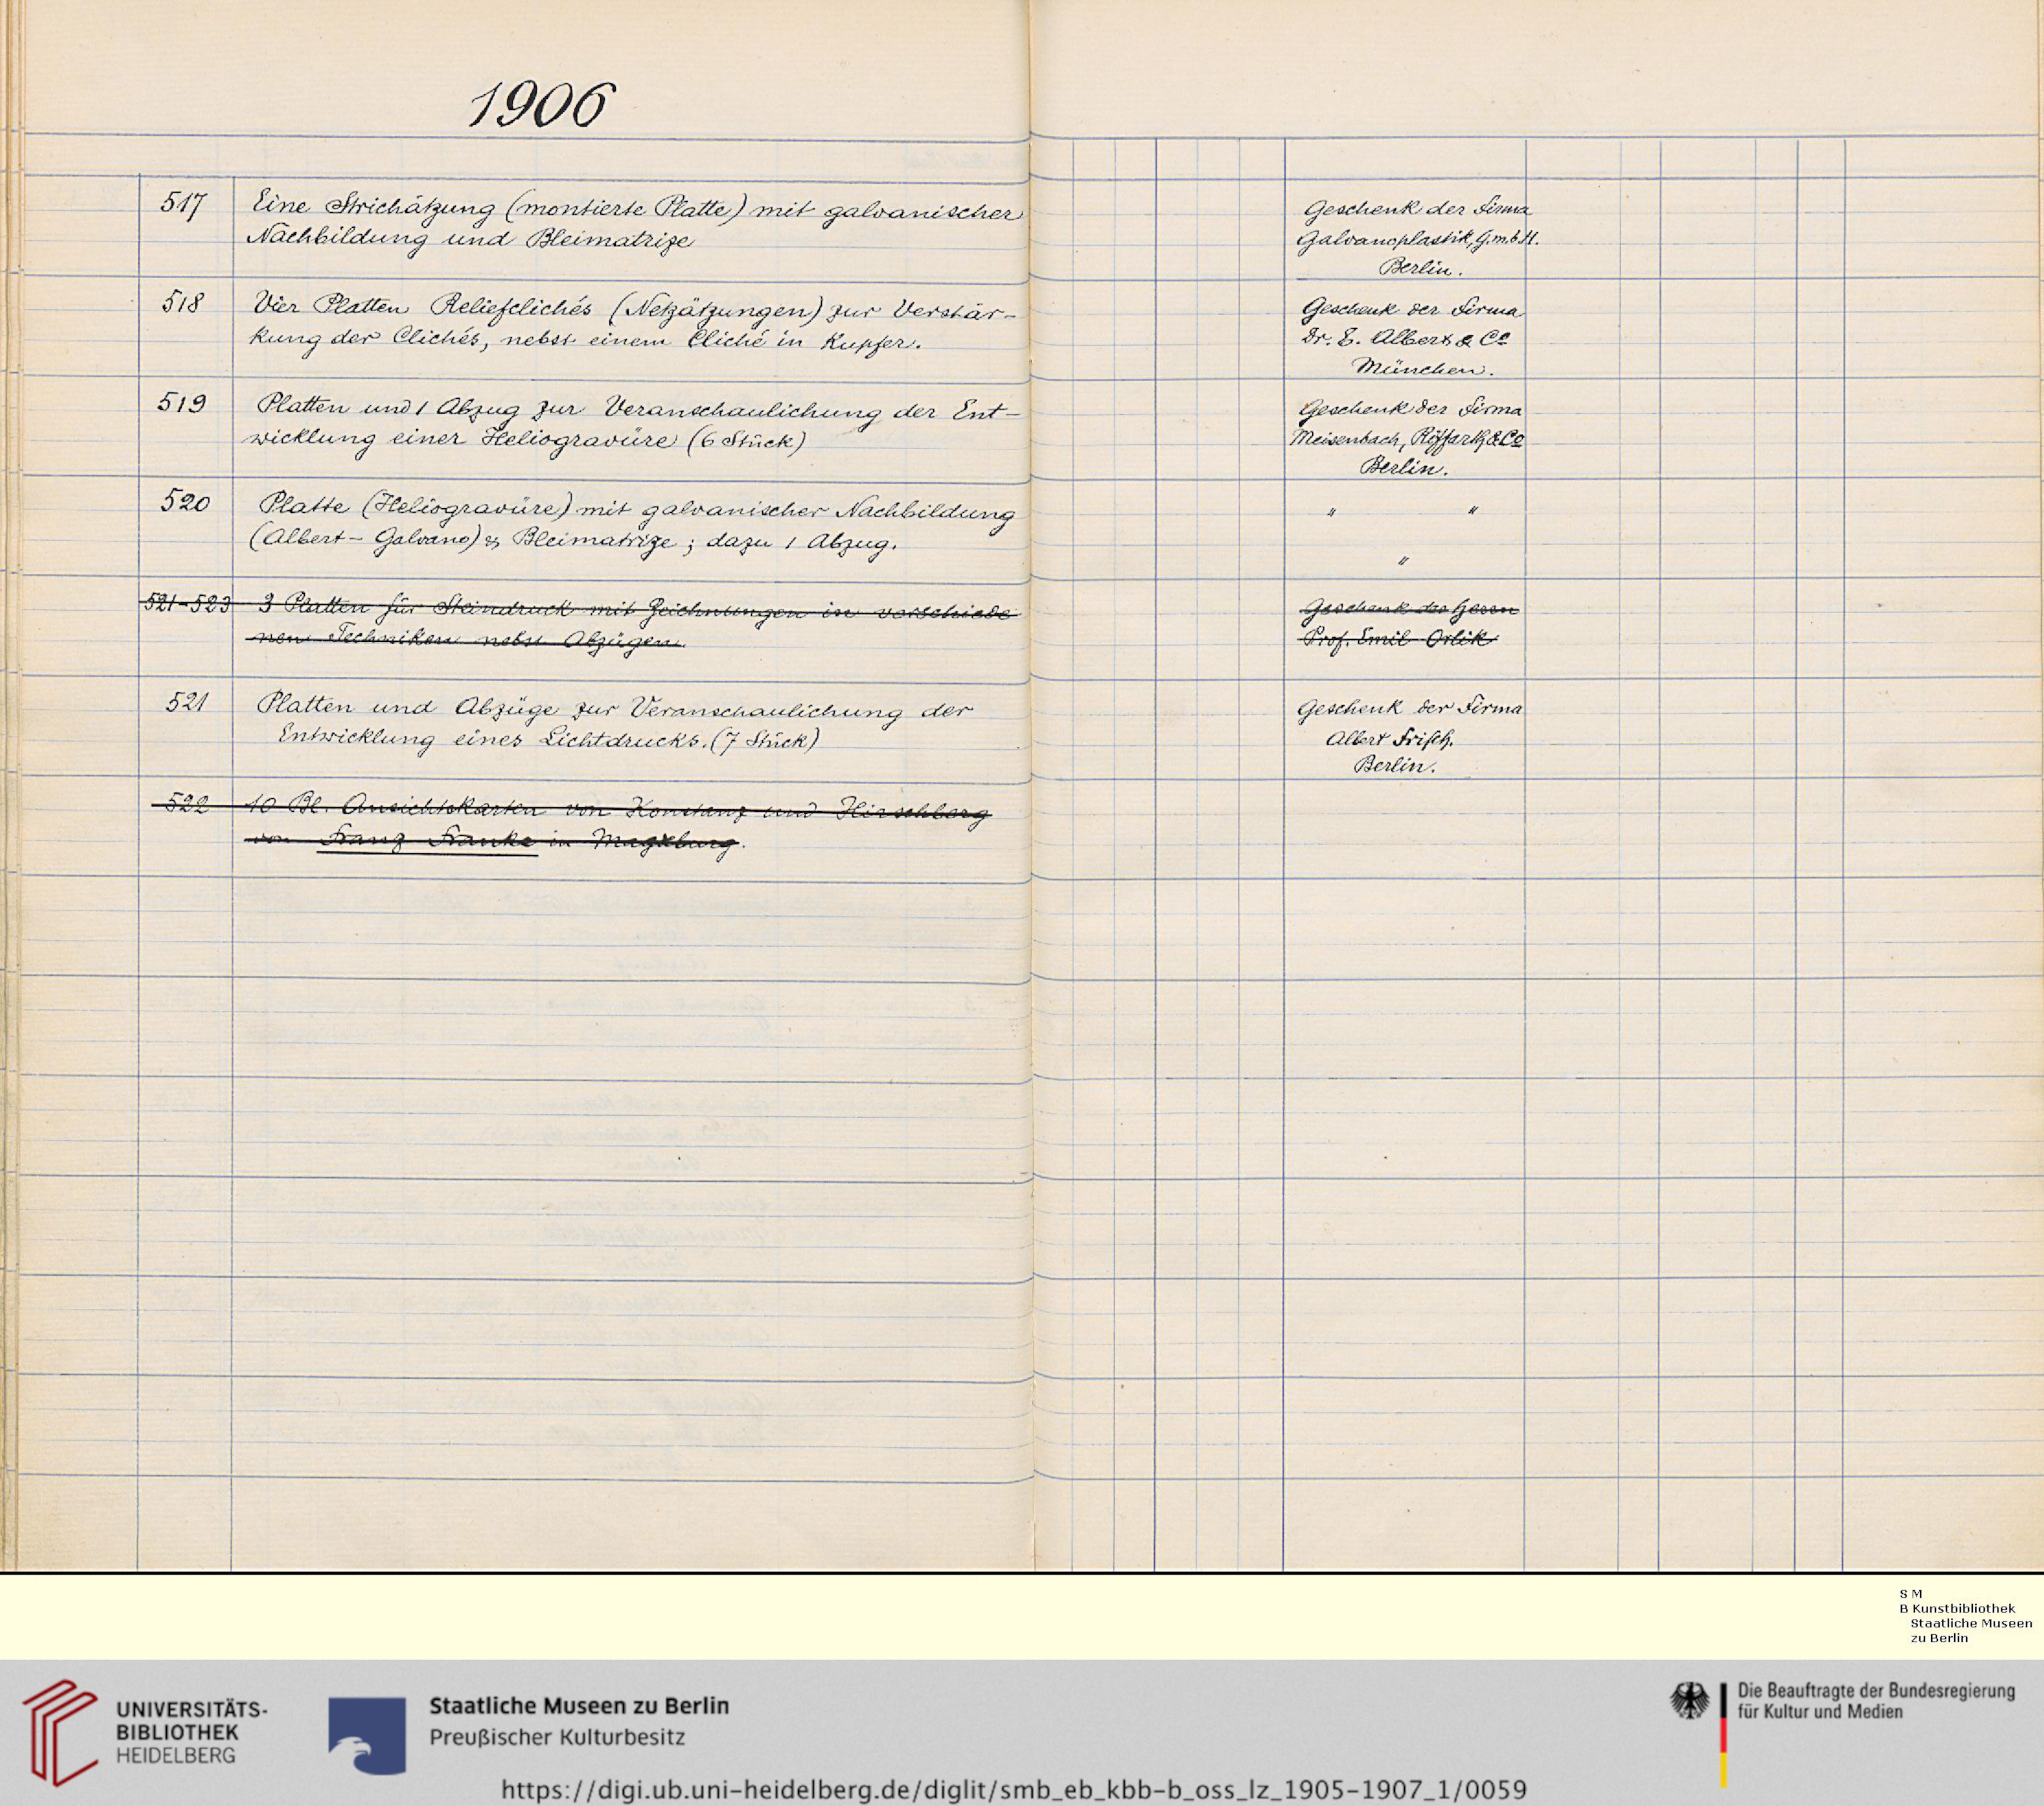 1906
517 Eine Strichätzung (montierte Platte) mit galvanischer
Nachbildung und Bleimatrize
Geschenk der Firma
Galvanoplastik, G.m.b.H.
Berlin.
518 Vier Platten Reliefclichés (Netzätzungen) zur Verstär-
kung der Clichés, nebst einem Cliché in Kupfer.
Geschenk der Firma
Dr. E. Albert & Co
München.
519 Platten und 1 Abzug zur Veranschaulichung der Ent-
wicklung einer Heliogravüre (6 Stück)
Geschenk der Firma
Meisenbach, Riffarth & Co
Berlin.
520 Platte (Heliogravüre) mit galvanischer Nachbildung
(Albert-Galvano) & Bleimatrize; dazu 1 Abzug.
" "
"
521-523 3 Platten für Steindruck mit Zeichnungen in verschiede
nen Techniken nebst Abzügen.
Geschenk des Herrn
Prof. Emil Orlik
521 Platten und Abzüge zur Veranschaulichung der
Entwicklung eines Lichtdrucks. (7 Stück)
Geschenk der Firma
Albert Frisch.
Berlin.
522 10 Bl. Ansichtskarten von Konstanz und Hirschberg
von Franz Franke in Magdeburg.
S M
B Kunstbibliothek
Staatliche Museen
zu Berlin
UNIVERSITÄTS-
BIBLIOTHEK
HEIDELBERG
Staatliche Museen zu Berlin
Preußischer Kulturbesitz
Die Beauftragte der Bundesregierung
für Kultur und Medien
https://digi.ub.uni-heidelberg.de/diglit/smb_eb_kbb-b_oss_lz_1905-1907_1/0059